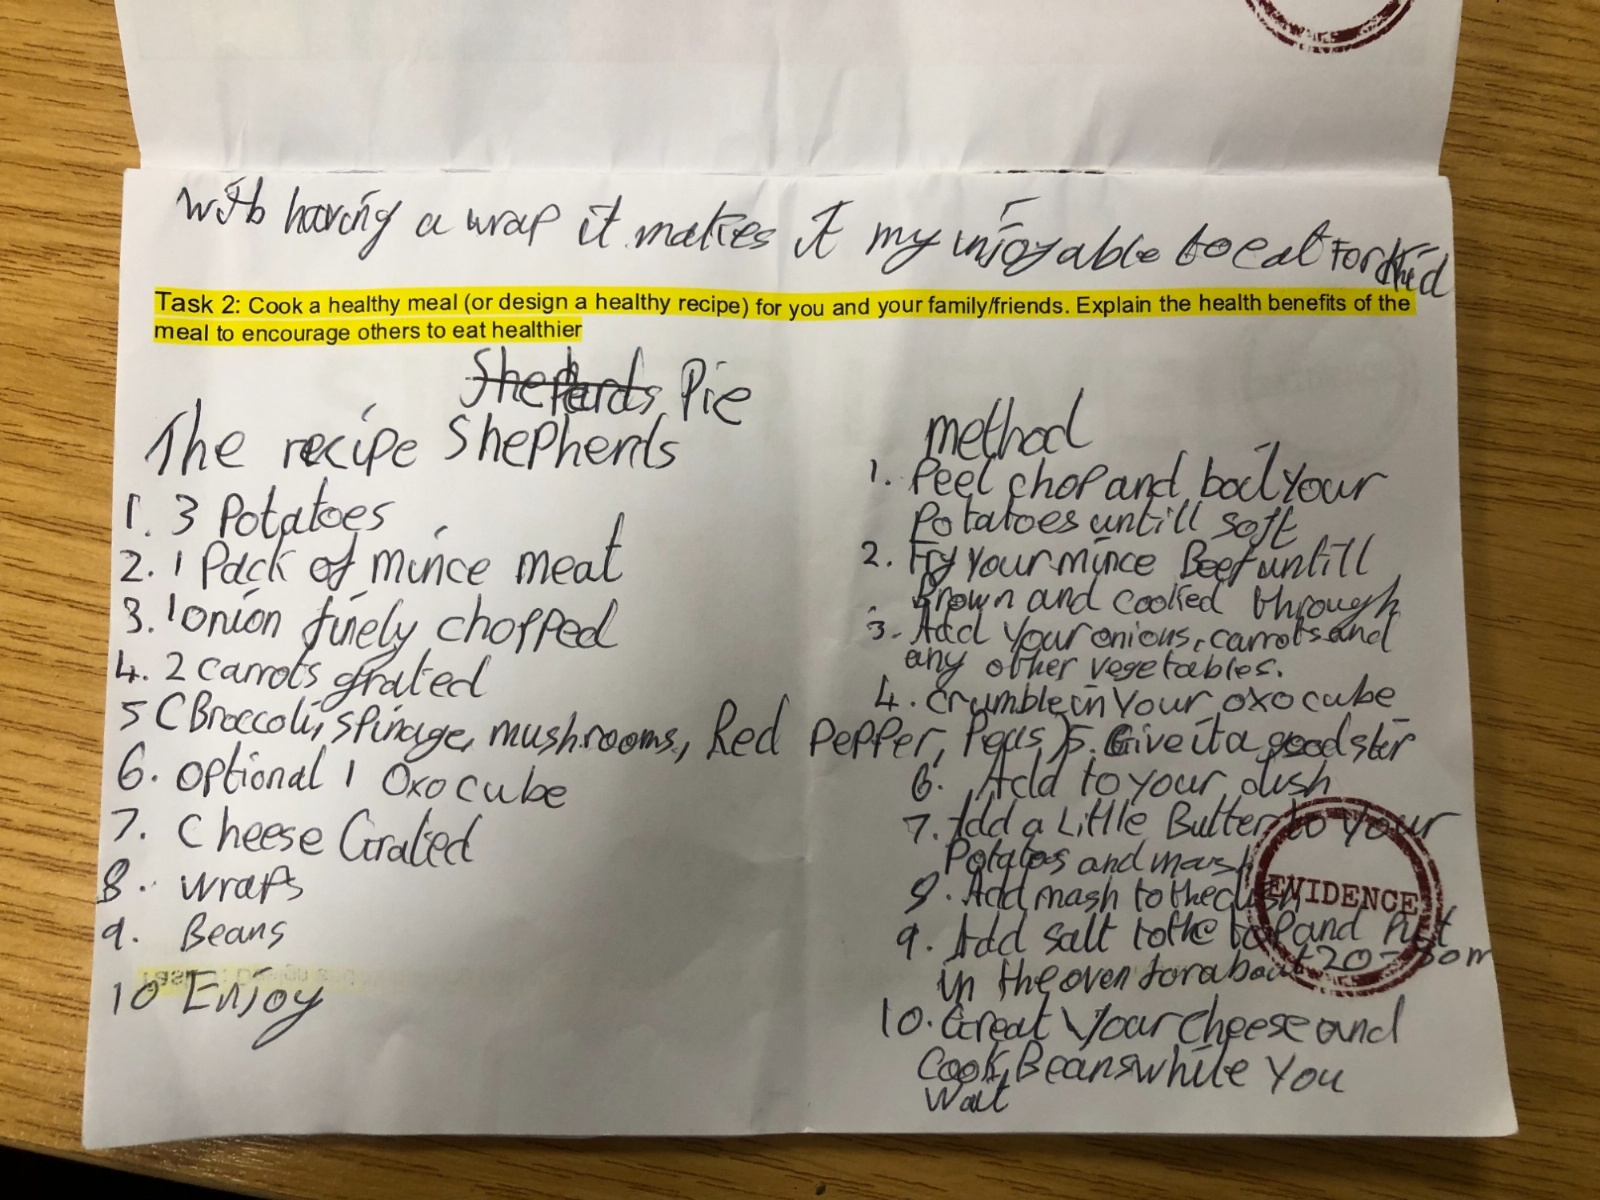 with having a wrap it makes it my injoyable to eat for
Task 2: Cook a healthy meal (or design a healthy recipe) for you and your family/friends. Explain the health benefits of the
meal to encourage others to eat healthier
Shepherds Pie
The recipe Shepherds
1. 3 Potatoes
2. 1 Pack of mince meat
3. 1 onion finely chopped
4. 2 carrots grated
5 (Broccoli, spinage, mushrooms, Red pepper, Peas)
6. optional 1 Oxo cube
7. Cheese Grated
8. wraps
9. Beans
10 Enjoy
method
1. Peel chop and boil your
Potatoes untill soft
2. Fry your mince Beef untill
Brown and cooked through
3. Add your onions, carrots and
any other vegetables.
4. crumble in your oxo cube
5. Give it a good stir
6. Add to your dish
7. Add a Little Butter to your
Potatos and mash
8. Add mash to the dish
9. Add salt to the top and Put
in the oven for about 20-30m
10. Great your cheese and
Cook Beans while you
wait
EVIDENCE